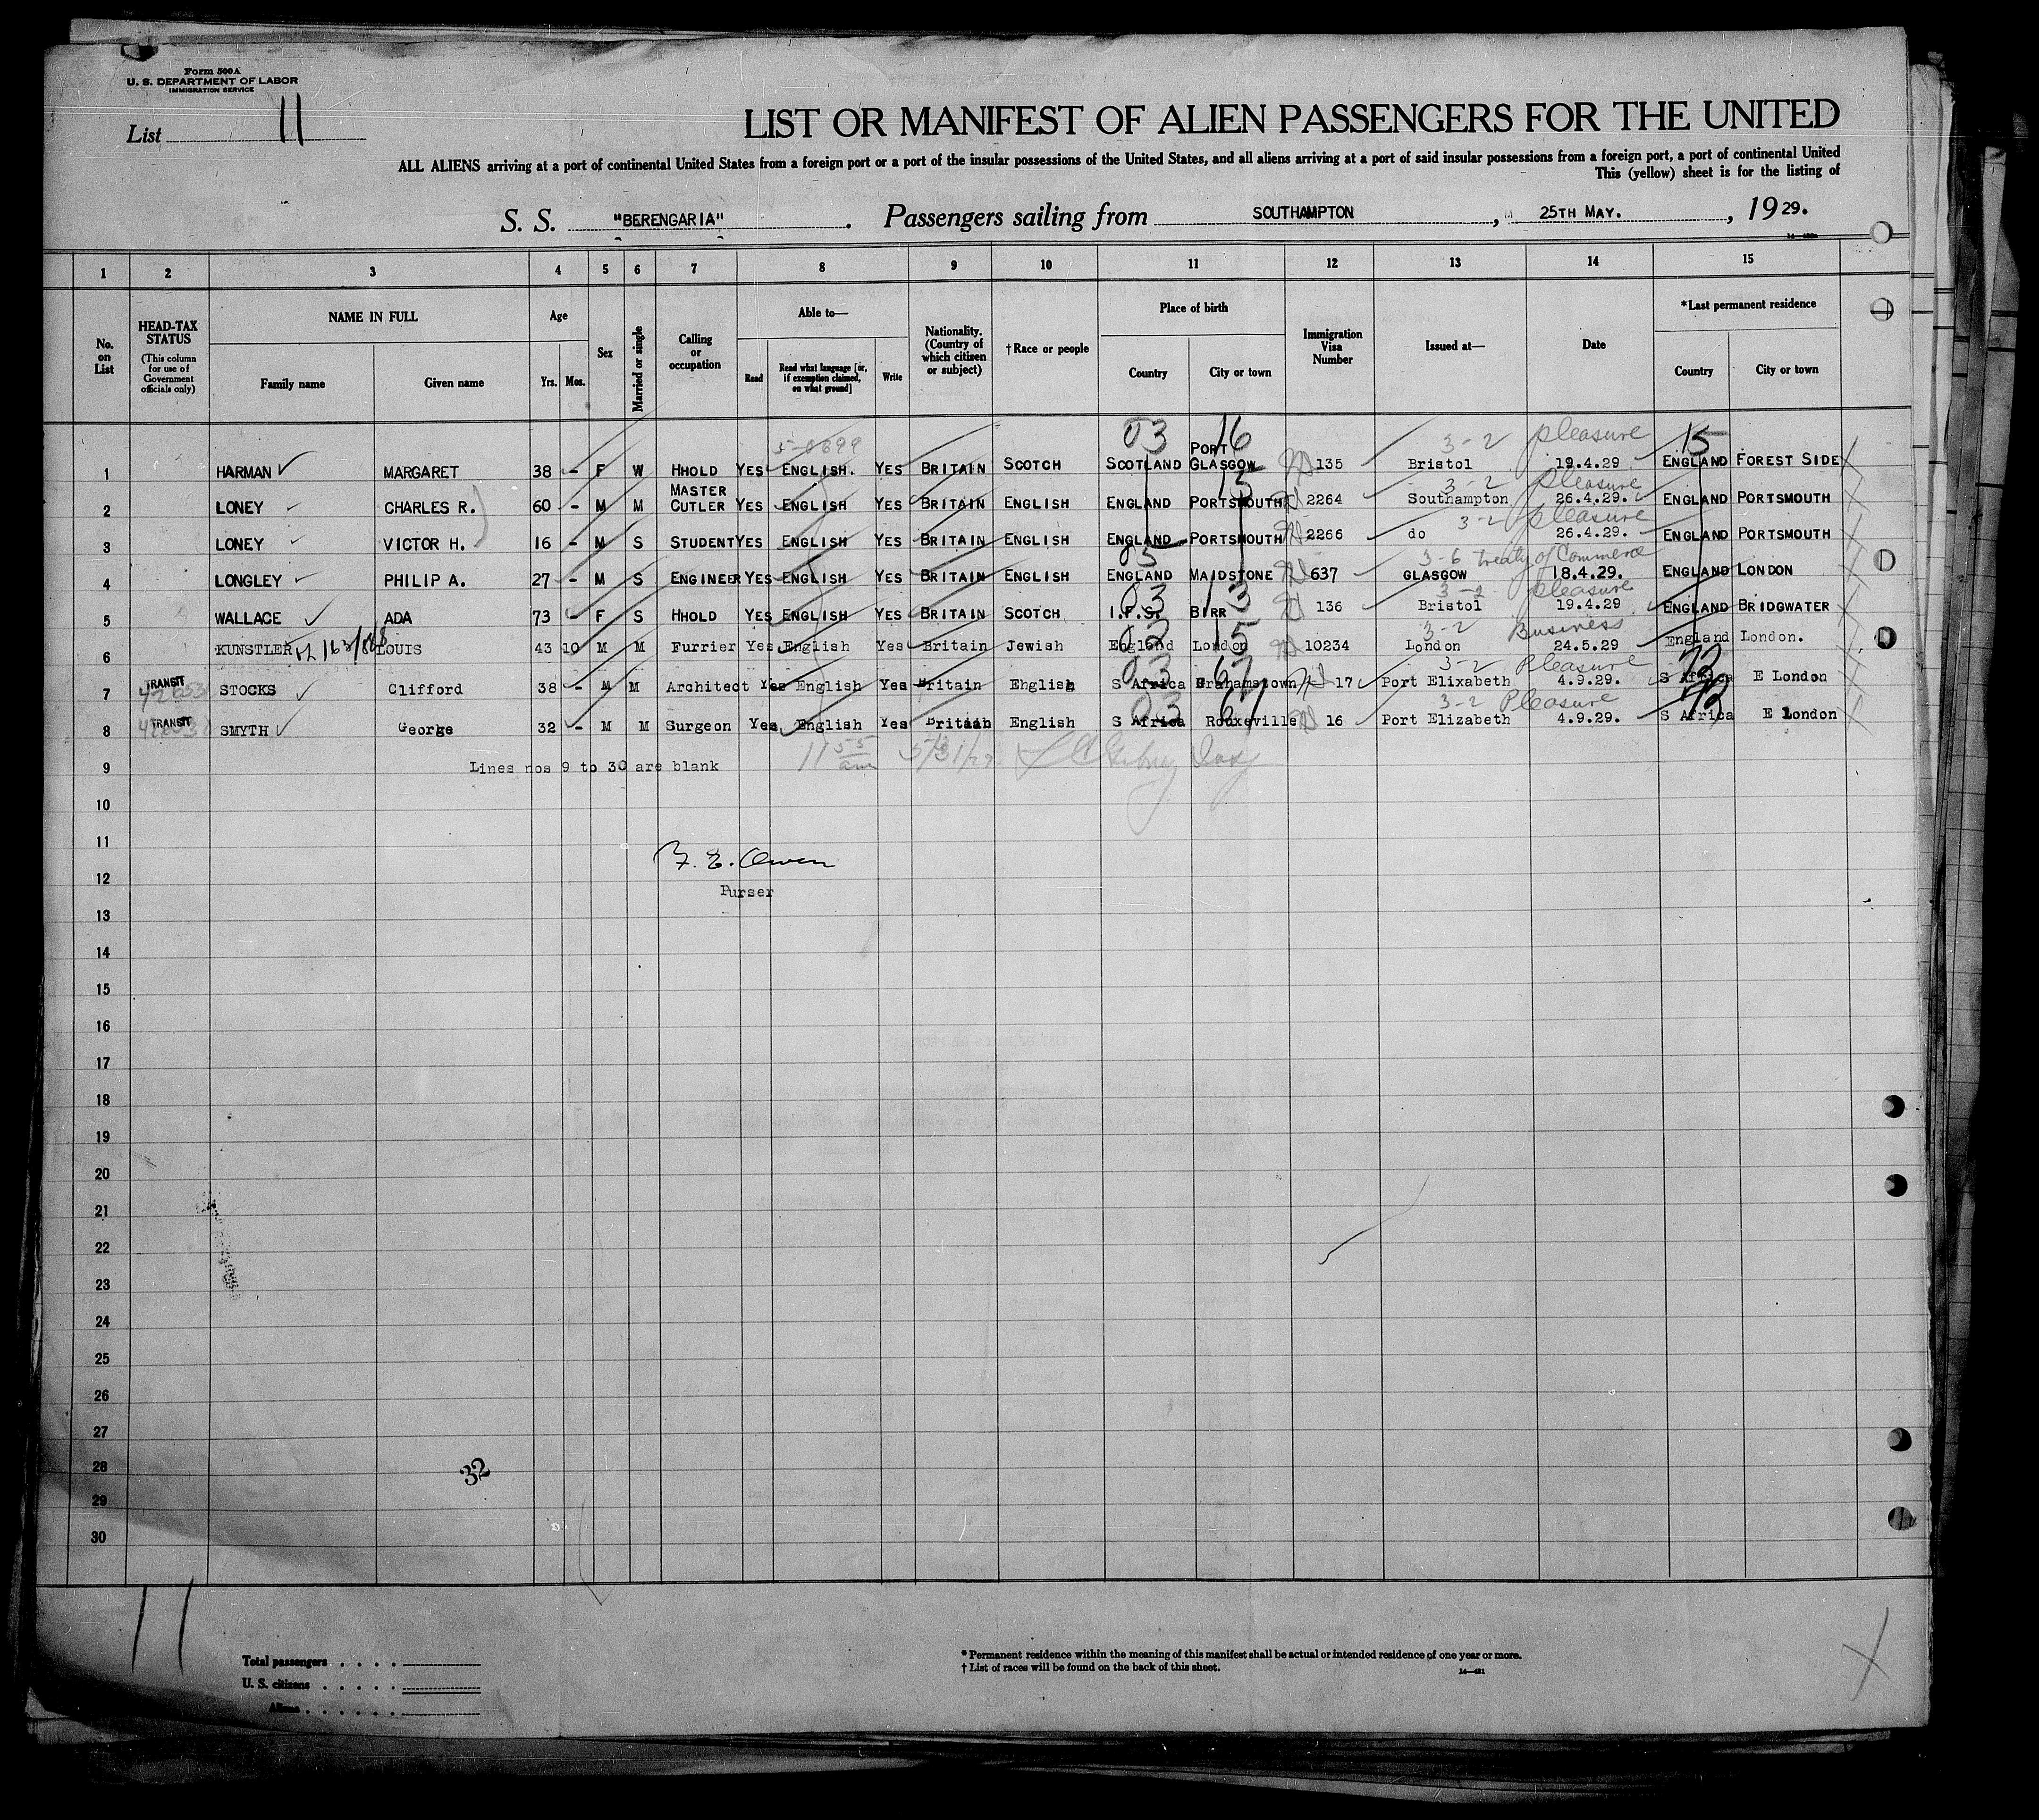 Form 500A
U. S. DEPARTMENT OF LABOR
IMMIGRATION SERVICE
List 11
LIST OR MANIFEST OF ALIEN PASSENGERS FOR THE UNITED
ALL ALIENS arriving at a port of continental United States from a foreign port or a port of the insular possessions of the United States, and all aliens arriving at a port of said insular possessions from a foreign port, a port of continental United
This (yellow) sheet is for the listing of
S. S. "BERENGARIA". Passengers sailing from SOUTHAMPTON, 25TH MAY., 1929.
1 2 3 4 5 6 7 8 9 10 11 12 13 14 15
No. on List
HEAD-TAX STATUS (This column for use of Government officials only)
NAME IN FULL
Family name Given name
Age
Yrs. Mos.
Sex
Married or single
Calling or occupation
Able to—
Read Read what language [or, if exemption claimed, on what ground] Write
Nationality. (Country of which citizen or subject)
†Race or people
Place of birth
Country City or town
Immigration Visa Number
Issued at—
Date
*Last permanent residence
Country City or town
03 16 3-2 pleasure 15
1 HARMAN MARGARET 38 - F W HHOLD YES ENGLISH. YES BRITAIN SCOTCH SCOTLAND PORT GLASGOW 135 Bristol 19.4.29 ENGLAND FOREST SIDE
15 3-2 pleasure
2 LONEY CHARLES R. 60 - M M MASTER CUTLER YES ENGLISH YES BRITAIN ENGLISH ENGLAND PORTSMOUTH 2264 Southampton 26.4.29. ENGLAND PORTSMOUTH
3-2 pleasure
3 LONEY VICTOR H. 16 - M S STUDENT YES ENGLISH YES BRITAIN ENGLISH ENGLAND PORTSMOUTH 2266 do 26.4.29. ENGLAND PORTSMOUTH
05 3-6 treaty of Commerce
4 LONGLEY PHILIP A. 27 - M S ENGINEER YES ENGLISH YES BRITAIN ENGLISH ENGLAND MAIDSTONE 637 GLASGOW 18.4.29. ENGLAND LONDON
03 13 3-2 pleasure
5 WALLACE ADA 73 - F S HHOLD YES ENGLISH YES BRITAIN SCOTCH I.F.S. BIRR 136 Bristol 19.4.29 ENGLAND BRIDGWATER
02 15 3-2 Business
6 KUNSTLER LOUIS 43 10 M M Furrier Yes English Yes Britain Jewish England London 10234 London 24.5.29 England London.
03 67 3-2 Pleasure 72
7 TRANSIT STOCKS Clifford 38 - M M Architect Yes English Yes Britain English S Africa Grahamstown 17 Port Elixabeth 4.9.29. S Africa E London
03 67 3-2 Pleasure 72
8 TRANSIT SMYTH George 32 - M M Surgeon Yes English Yes Britain English S Africa Rouxeville 16 Port Elizabeth 4.9.29. S Africa E London
9 Lines nos 9 to 30 are blank 11 55 am 5/31/29
10
11
F. E. Owen
12
Purser
13
14
15
16
17
18
19
20
21
22
23
24
25
26
27
28 32
29
30
11
Total passengers
U. S. citizens
Aliens
* Permanent residence within the meaning of this manifest shall be actual or intended residence of one year or more.
† List of races will be found on the back of this sheet.
14—421